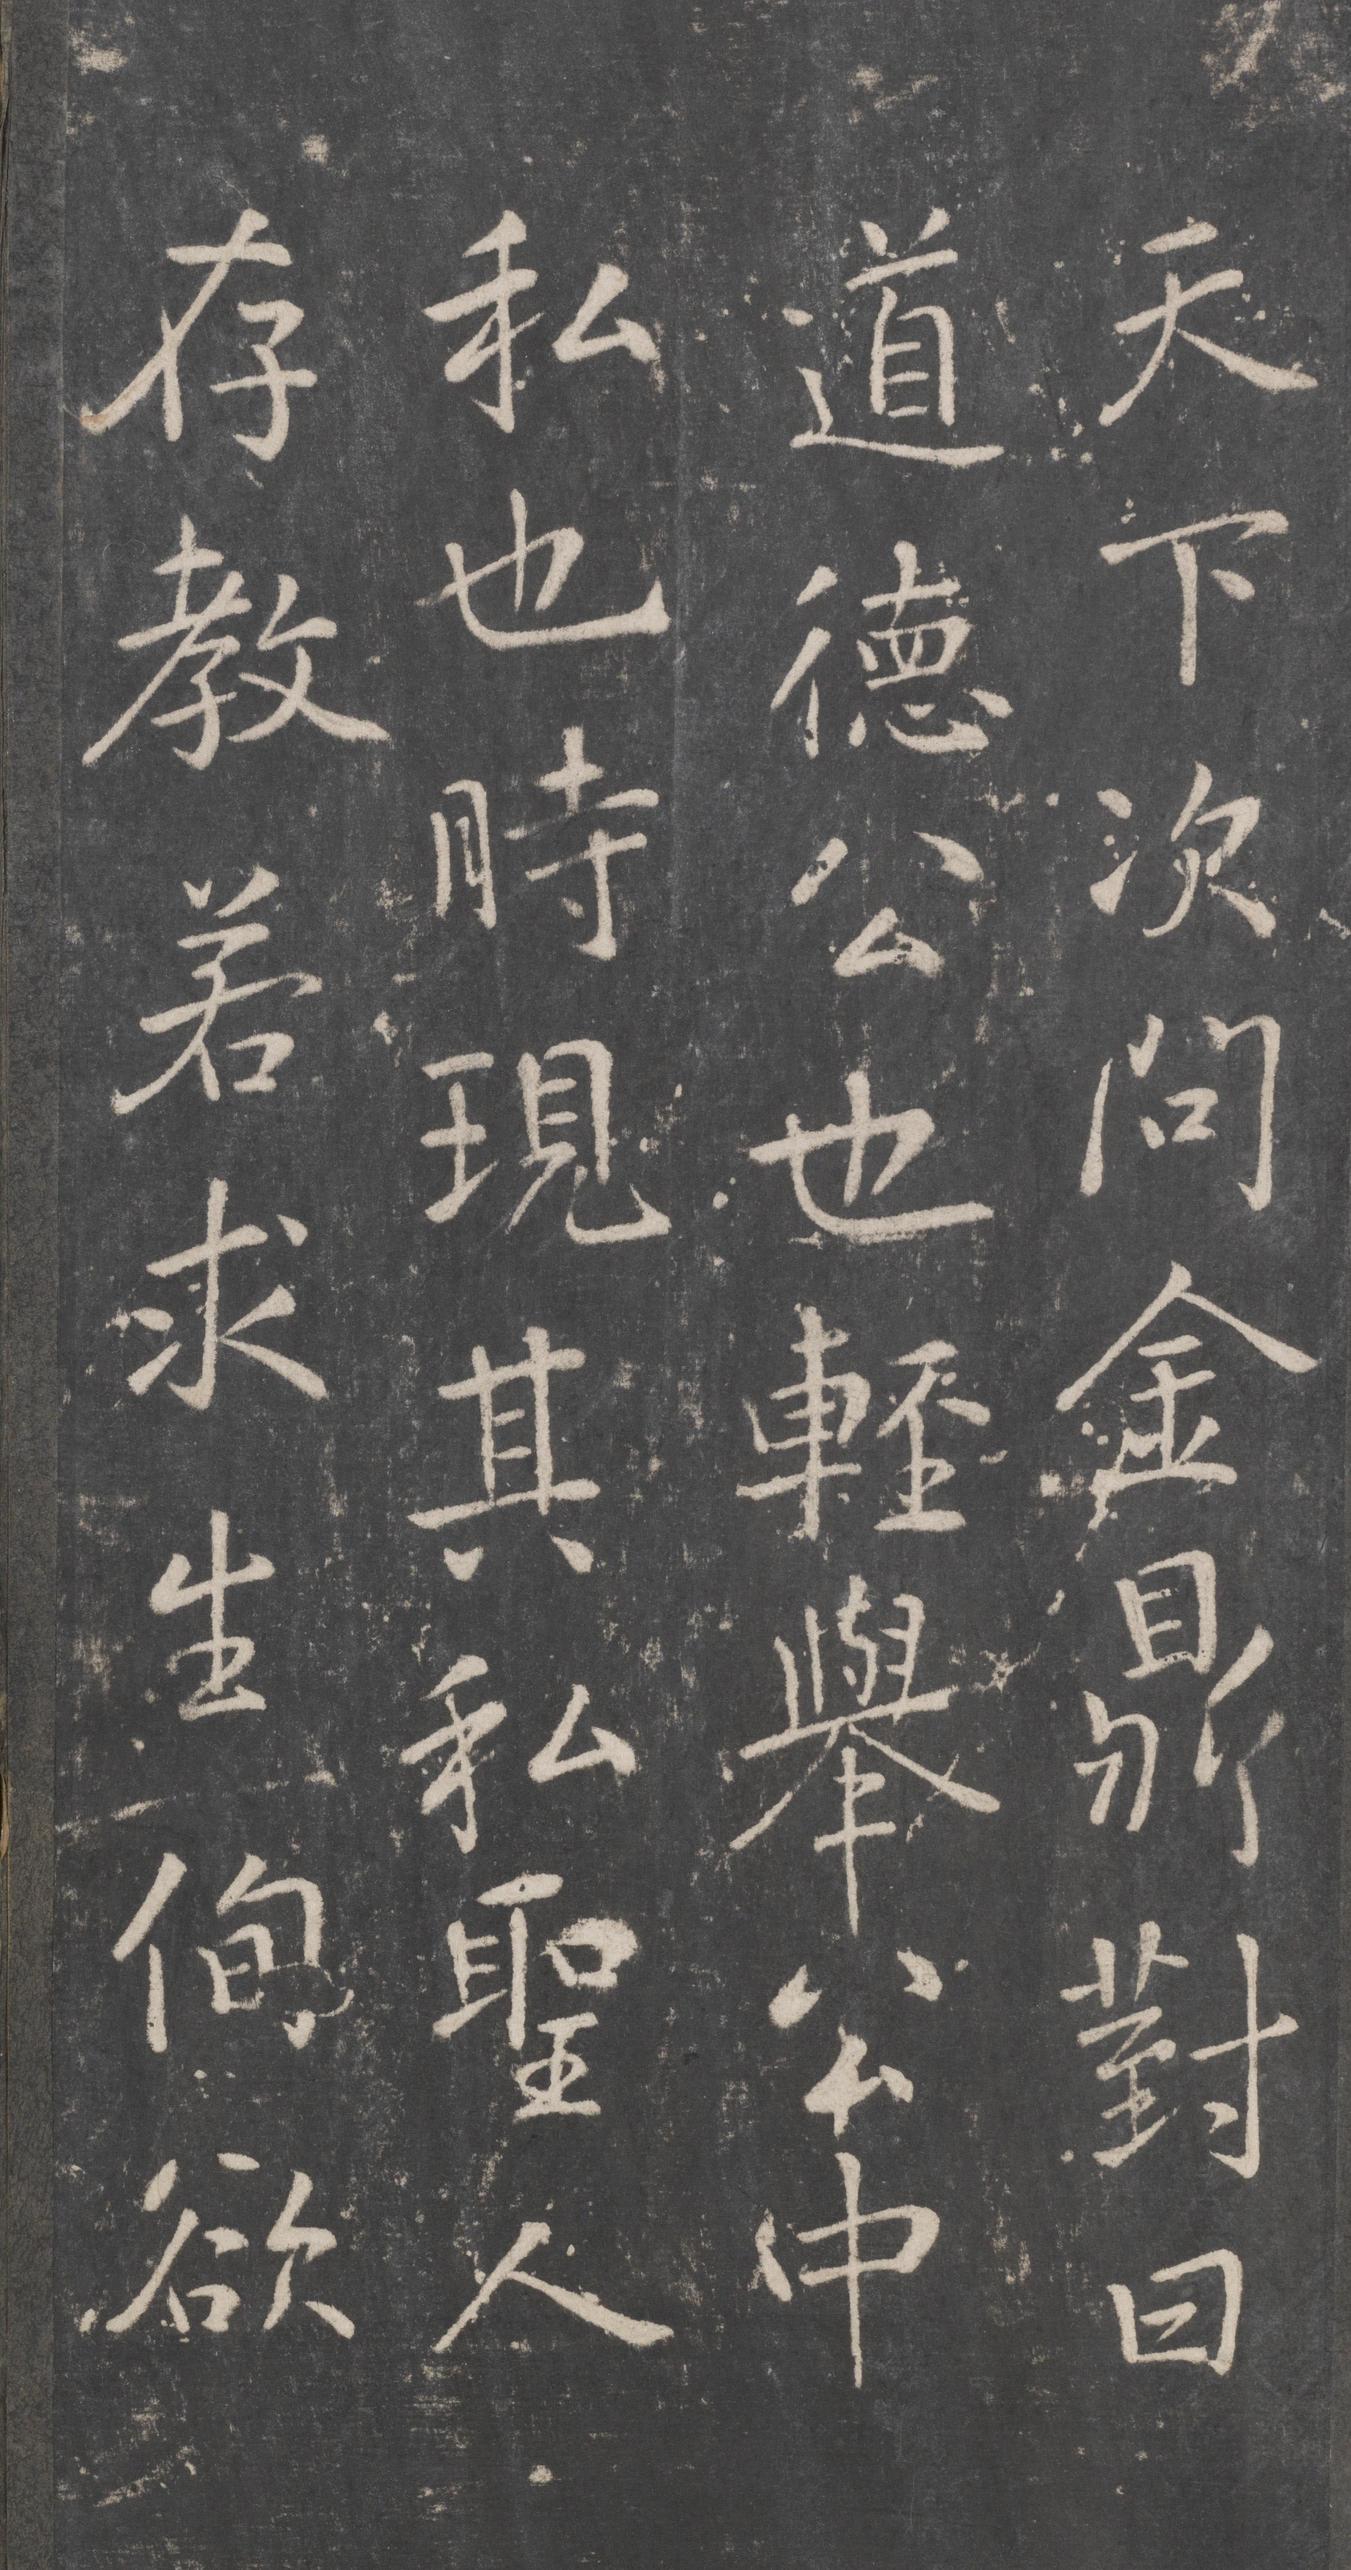 天下次問金鼎對曰
道德公也輕舉公中
私也時現其私聖人
存教若求生徇欲